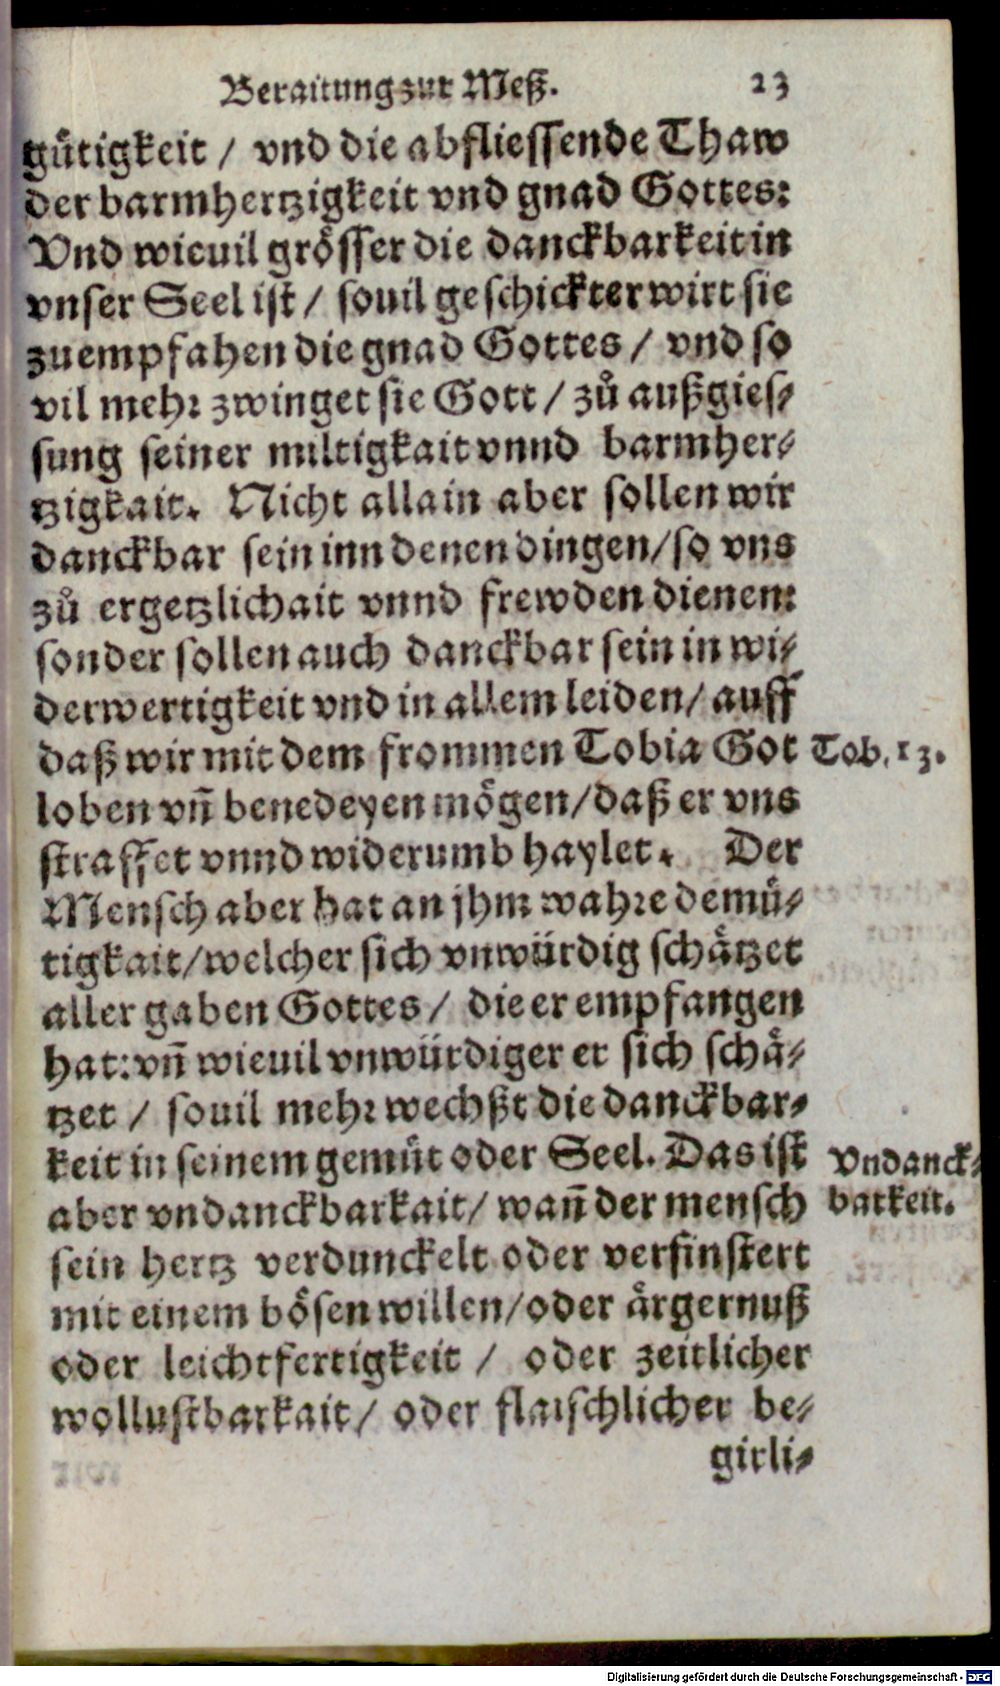 Beraitung zur Meß. 23
gütigkeit / vnd die abfliessende Thaw
der barmhertzigkeit vnd gnad Gottes:
Vnd wieuil grösser die danckbarkeit in
vnser Seel ist / souil geschickter wirt sie
zuempfahen die gnad Gottes / vnd so
vil mehr zwinget sie Gott / zů außgies-
sung seiner miltigkait vnnd barmher-
tzigkait. Nicht allain aber sollen wir
danckbar sein inn denen dingen/so vns
zů ergetzlichait vnnd frewden dienen:
sonder sollen auch danckbar sein in wi-
derwertigkeit vnd in allem leiden/ auff
daß wir mit dem frommen Tobia Got Tob. 13.
loben vñ benedeyen mögen/daß er vns
straffet vnnd widerumb haylet. Der
Mensch aber hat an jhm wahre demü-
tigkait/welcher sich vnwürdig schätzet
aller gaben Gottes / die er empfangen
hat: vñ wieuil vnwürdiger er sich schä-
tzet / souil mehr wechßt die danckbar-
keit in seinem gemüt oder Seel. Das ist Vndanck-
aber vndanckbarkait/ wañ der mensch barkeit.
sein hertz verdunckelt oder verfinstert
mit einem bösen willen/oder ärgernuß
oder leichtfertigkeit / oder zeitlicher
wollustbarkait/ oder flaischlicher be-
girli-
Digitalisierung gefördert durch die Deutsche Forschungsgemeinschaft - DFG